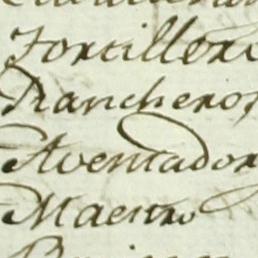 Tortillero
Rancheros
Aventador
Maestro